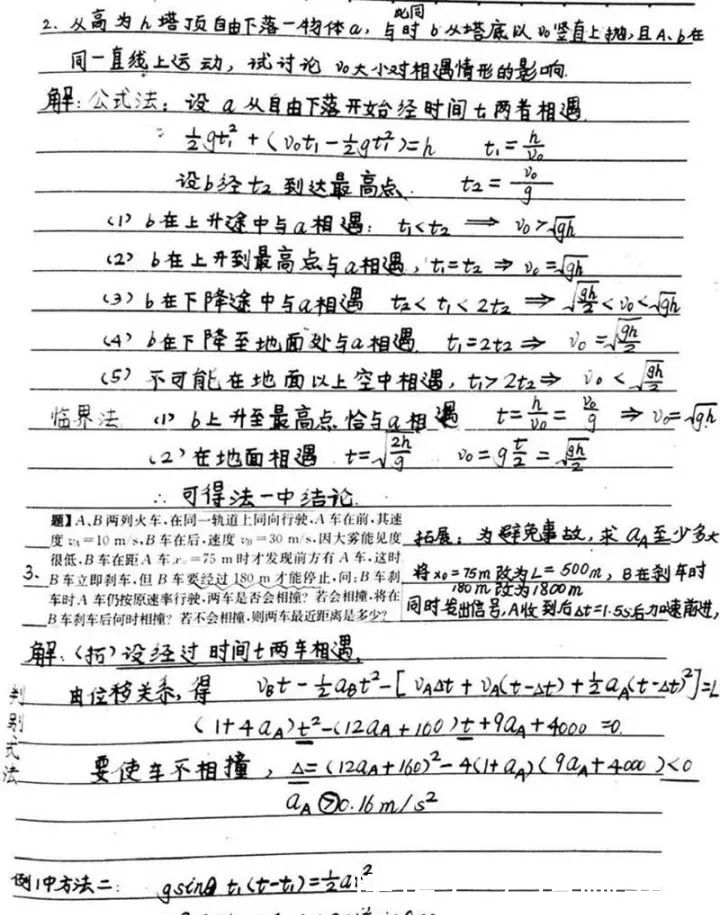 2. 从高为h塔顶自由下落一物体a, 与此同时b从塔底以v₀竖直上抛,且A、b在
同一直线上运动, 试讨论 v₀大小对相遇情形的影响.
解: 公式法: 设 a 从自由下落开始经时间t₁两者相遇.
½gt₁² + (v₀t₁ - ½gt₁²) = h t₁ = h/v₀
设b经t₂到达最高点. t₂ = v₀/g
(1) b在上升途中与a相遇: t₁<t₂ ⟹ v₀>√gh
(2) b在上升到最高点与a相遇, t₁=t₂ ⇒ v₀=√gh
(3) b在下降途中与a相遇 t₂<t₁<2t₂ ⇒ √(gh/2)<v₀<√gh
(4) b在下降至地面处与a相遇. t₁=2t₂ ⇒ v₀=√(gh/2)
(5) 不可能在地面以上空中相遇, t₁>2t₂ ⇒ v₀<√(gh/2)
临界法 (1) b上升至最高点恰与a相遇 t=h/v₀=v₀/g ⇒ v₀=√gh
(2) 在地面相遇 t=√(2h/g) v₀=g t/2=√(gh/2)
∴ 可得法一中结论.
3.
题】A、B两列火车,在同一轨道上同向行驶,A车在前,其速
度 vA=10 m/s,B车在后,速度 vB=30 m/s,因大雾能见度
很低,B车在距A车 x₀=75 m时才发现前方有A车,这时
B车立即刹车,但B车要经过180 m才能停止,问:B车刹
车时A车仍按原速率行驶,两车是否会相撞?若会相撞,将在
B车刹车后何时相撞?若不会相撞,则两车最近距离是多少?
拓展: 为避免事故, 求 aA至少多大
将x₀=75m改为L=500m, B在刹车时
180m改为1800m
同时发出信号, A收到后Δt=1.5s后加速前进,
解: (拓) 设经过时间t两车相遇,
判别式法
由位移关系, 得 vBt - ½aBt² - [vAΔt + vA(t-Δt) + ½aA(t-Δt)²] = L
(1+4aA)t² - (12aA+160)t + 9aA + 4000 = 0.
要使车不相撞, Δ=(12aA+160)² - 4(1+aA)(9aA+4000)<0
aA>0.16m/s²
例1中方法二: gsinθ t₁(t-t₁)=½at²